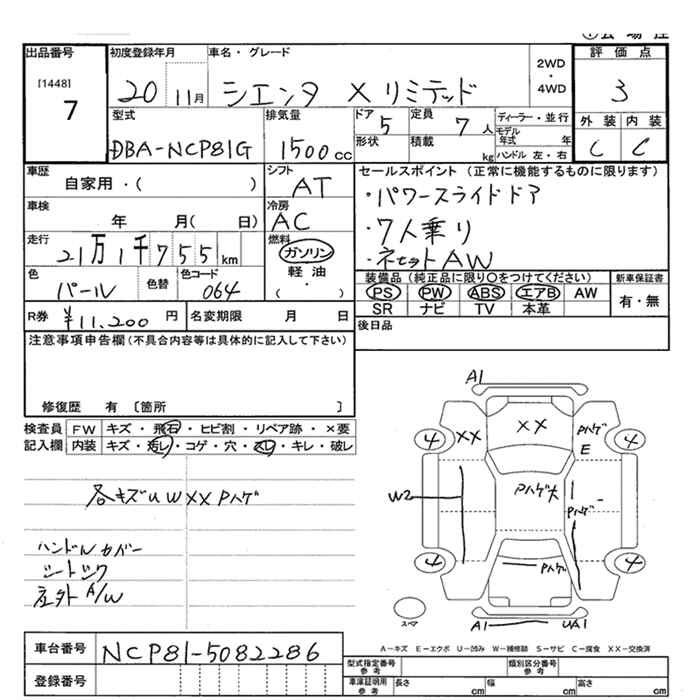 出品番号 [1448] 7
初度登録年月 20 11月
車名・グレード シエンタ X リミテッド
2WD・4WD
評価点 3
外装 C 内装 C
型式 DBA-NCP81G
排気量 1500cc
ドア 5 定員 7人
形状 積載 kg
ディーラー・並行
モデル年式 年
ハンドル 左・右
車歴 自家用・( )
シフト AT
セールスポイント (正常に機能するものに限ります)
・パワースライドドア
・7人乗り
車検 年 月( 日)
冷房 AC
走行 21万1千755km
燃料 ガソリン 軽油 ・( )
色 パール 色替 色コード 064
装備品 (純正品に限り○をつけてください)
PS PW ABS エアB AW
SR ナビ TV 本革
新車保証書 有・無
R券 ¥11,200円 名変期限 月 日
後日品
注意事項申告欄(不具合内容等は具体的に記入して下さい)
修復歴 有 〔箇所 〕
検査員記入欄
FW キズ・飛石・ヒビ割・リペア跡・×要
内装 キズ・汚レ・コゲ・穴・スレ・キレ・破レ
各キズU W XX Pハゲ
ハンドルカバー
A/W
A1
4 XX XX Pハゲ E 4
W2 Pハゲ大 Pハゲ
4 Pハゲ 4
A1 UA1
A-キズ E-エクボ U-凹み W-補修跡 S-サビ C-腐食 XX-交換済
車台番号 NCP81-5082286
登録番号
型式指定番号 参考 類別区分番号 参考
車庫証明用 参考 長さ cm 幅 cm 高さ cm